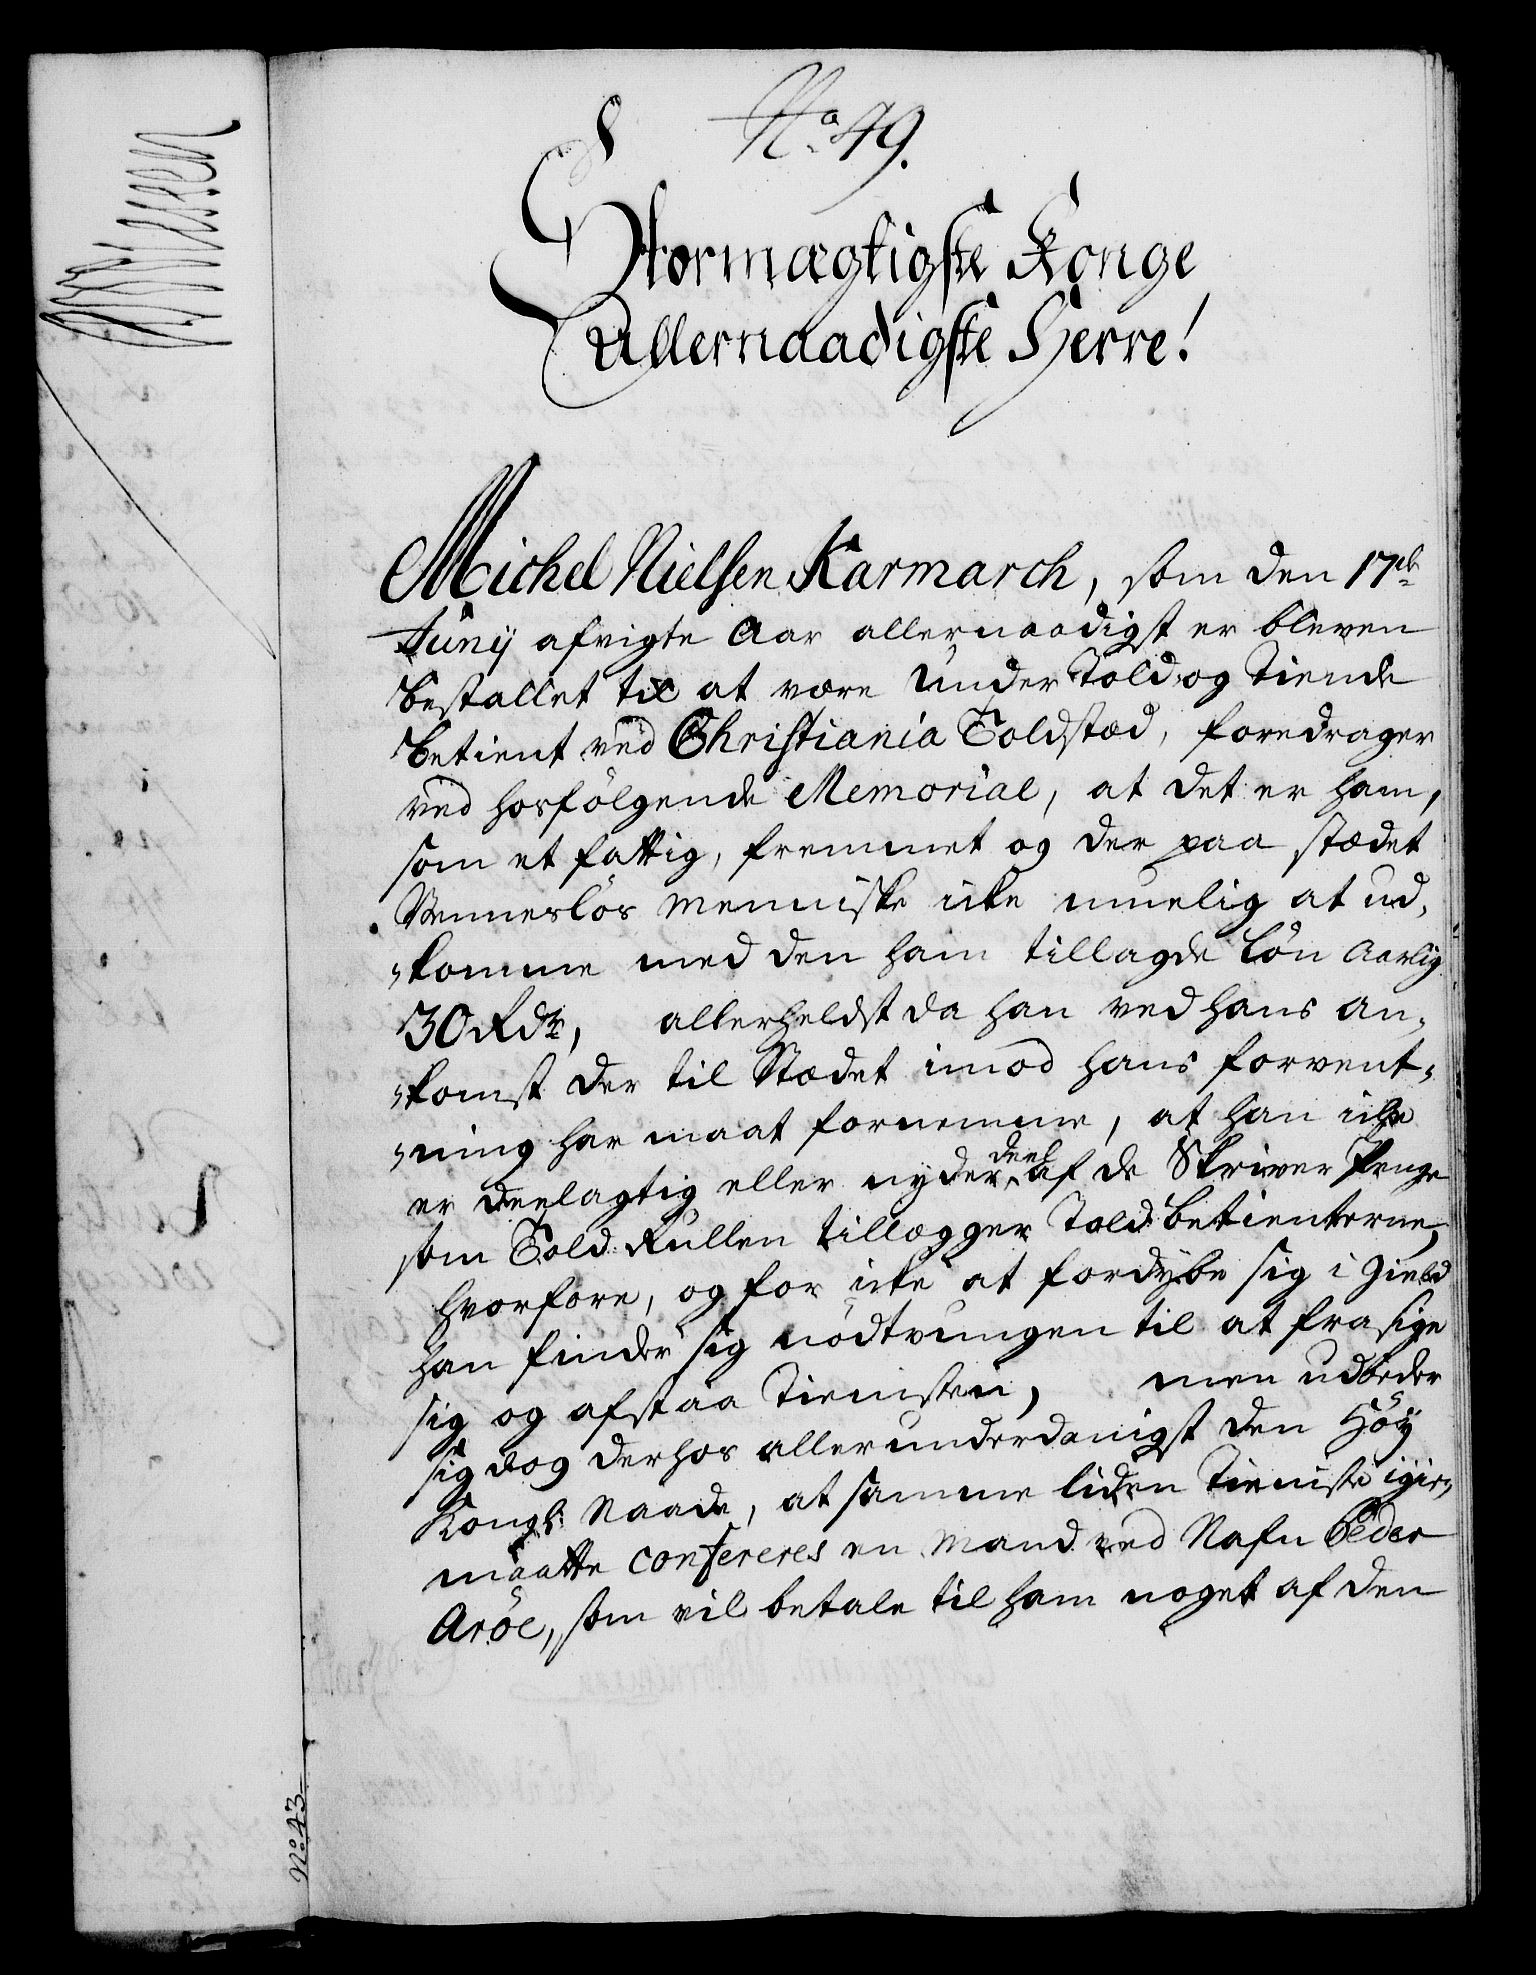 No 49.
Stormægtigste Konge
allernaadigste Herre!
Michel Nielsen Karmarch, som den 17de
Junij afvigte Aar allernaadigst er bleven
bestallet til at være Under Told og Tiende
betient ved Christiania Toldstæd, foredrager
ved hosfölgende Memorial, at det er ham,
som et fattig, fremmet og der paa stædet
Venneslös Menniske icke muelig at ud-
-komme med den ham tillagde Lön Aarlig
30 Rdr, allerheldst da han ved hans an-
-komst der til Stædet imod hans forvent-
-ning har maat fornemme, at han icke
er deelagtig eller nyder deel af de Skriver Penge
som Told Rullen tillægger Told betienterne,
hvorfore, og for icke at fordybe sig i Gield
han finder sig nödtvungen til at frasige
sig og afstaa Tienisten, men udbeder
sig dog derhos allerunderdanigst den Höy
Kongl: Naade, at samme liden Tieniste igien
maatte confereres en Mand ved Nafn Peder
Aröe, som vil betale til ham noget af den
No: 43